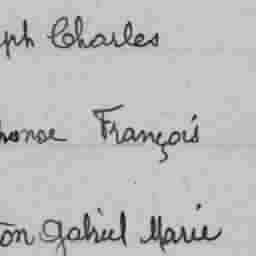 ph Charles
honse François
on Gabriel Marie